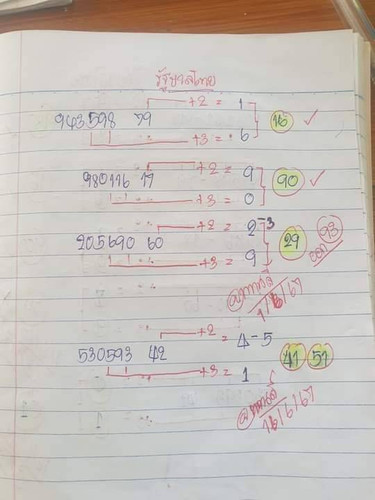 รัฐบาลไทย
+2 = 1
943598 79 16 ✓
+3 = 6
+2 = 9
980116 17 90 ✓
+3 = 0
+2 = 2-3
205690 60 29 93
+3 = 9
1/6/67
+2 = 4-5
530593 42 41 51
+3 = 1
16/6/67